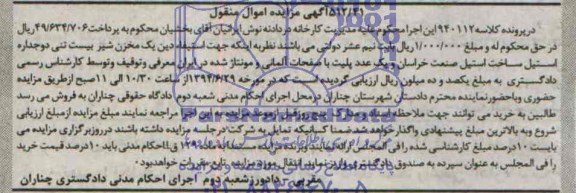 ۵۱۲/۲۱ آگهی مزایده اموال منقول
در پرونده کلاسه ۹۴۰۱۱۲ این اجرا محکوم علیه مدیریت کارخانه در دادنه نوش ایرانیان آقای بخشیان محکوم به پرداخت ۴۹/۶۳۴/۷۰۶ ریال
در حق محکوم له و مبلغ ۱/۰۰۰/۰۰۰ ریال بابت نیم عشر دولتی می باشند نظر به اینکه جهت استیفاء دین یک مخزن شیر بیست تنی دوجداره
استیل ساخت استیل صنعت خراسان و یک عدد پلیت با صفحات آلمانی و مونتاژ شده در ایران معرفی و توقیف و توسط کارشناس رسمی
دادگستری به مبلغ یکصد و ده میلیون ریال ارزیابی گردیده است که در مورخه ۱۳۹۴/۶/۲۹ از ساعت ۱۰/۳۰ الی ۱۱ صبح از طریق مزایده
حضوری و با حضور نماینده محترم دادستان شهرستان چناران در محل اجرای احکام مدنی شعبه دوم دادگاه حقوقی چناران به فروش می رسد
طالبین به خرید می توانند جهت ملاحظه پنج روز قبل از موعد مزایده به این اجرا مراجعه نمایند مبلغ مزایده از مبلغ ارزیابی
شروع و به بالاترین مبلغ پیشنهادی واگذار خواهد شد ضمنا کسانیکه تمایل به شرکت در جلسه مزایده داشته باشند در روز برگزاری مزایده می
بایست ۱۰ درصد مبلغ کارشناسی شده را فی المجلس ارائه نمایند و برنده مزایده ق.ا.احکام مدنی باید ۱۰ درصد قیمت خرید
را فی المجلس به عنوان سپرده به صندوق دادگستری واریز نماید انتقال مورد مزایده تابع مقررات خواهد بود.
دادورز شعبه دوم اجرای احکام مدنی دادگستری چناران